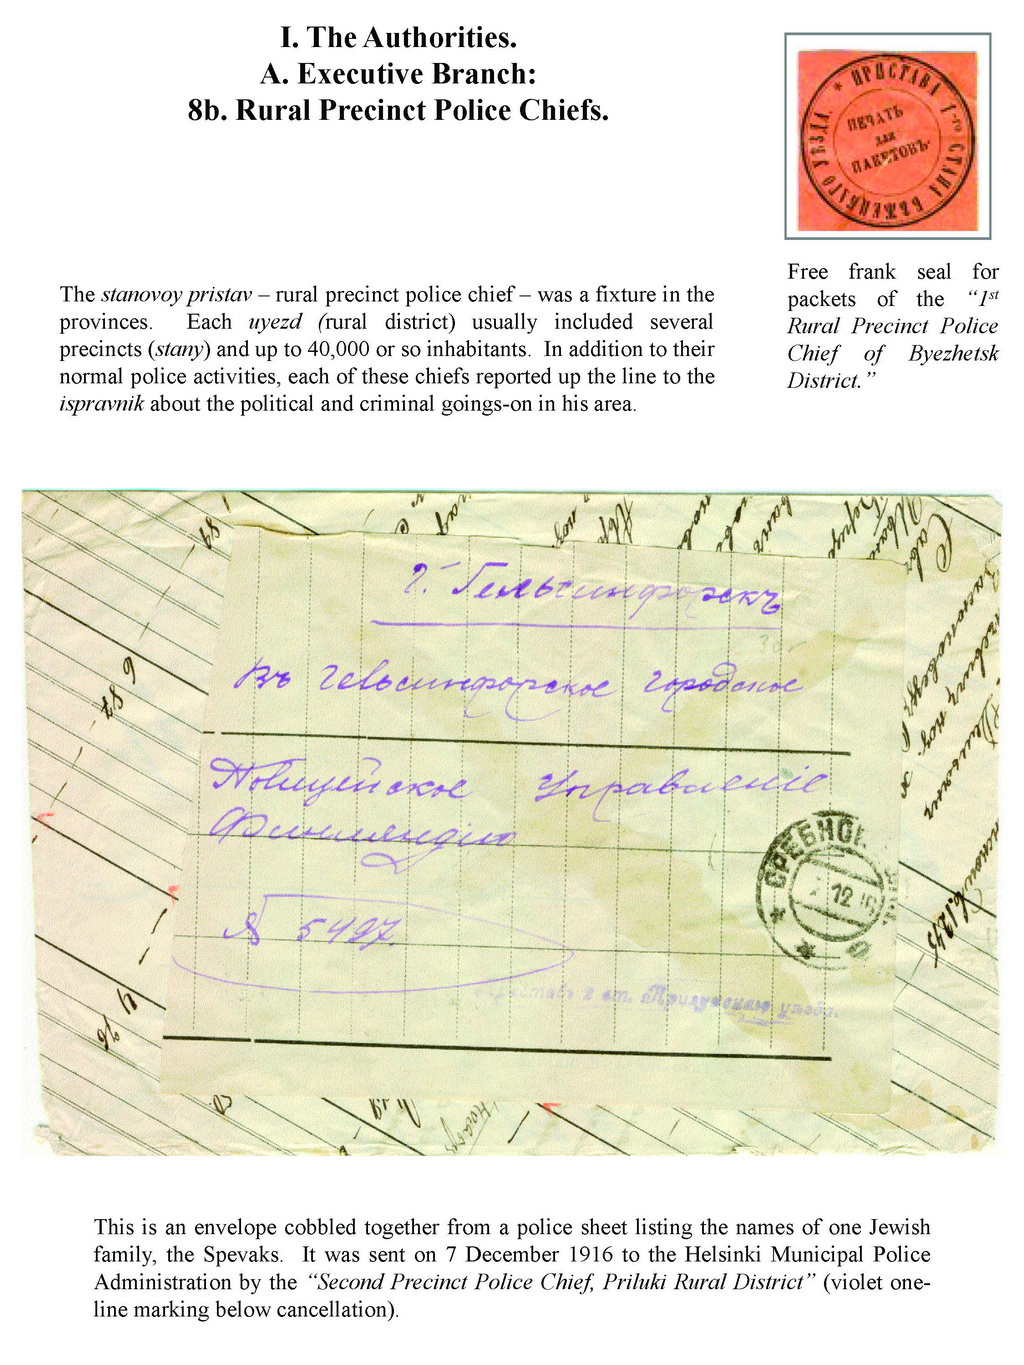 I. The Authorities.
A. Executive Branch:
8b. Rural Precinct Police Chiefs.
* ПРИСТАВА 1-го СТАНА БѢЖЕЦКАГО УѢЗДА.
ПЕЧАТЬ
для
ПАКЕТОВЪ.
Free frank seal for
packets of the “1st
Rural Precinct Police
Chief of Byezhetsk
District.”
The stanovoy pristav – rural precinct police chief – was a fixture in the
provinces. Each uyezd (rural district) usually included several
precincts (stany) and up to 40,000 or so inhabitants. In addition to their
normal police activities, each of these chiefs reported up the line to the
ispravnik about the political and criminal goings-on in his area.
Г. Гельсингфорскъ
Въ Гельсингфорское городское
Полицейское Управленіе
Финляндію
№ 5497.
СРЕБНОЕ
12 16
Приставъ 2 ст. Прилукскаго уѣзда.
This is an envelope cobbled together from a police sheet listing the names of one Jewish
family, the Spevaks. It was sent on 7 December 1916 to the Helsinki Municipal Police
Administration by the “Second Precinct Police Chief, Priluki Rural District” (violet one-
line marking below cancellation).